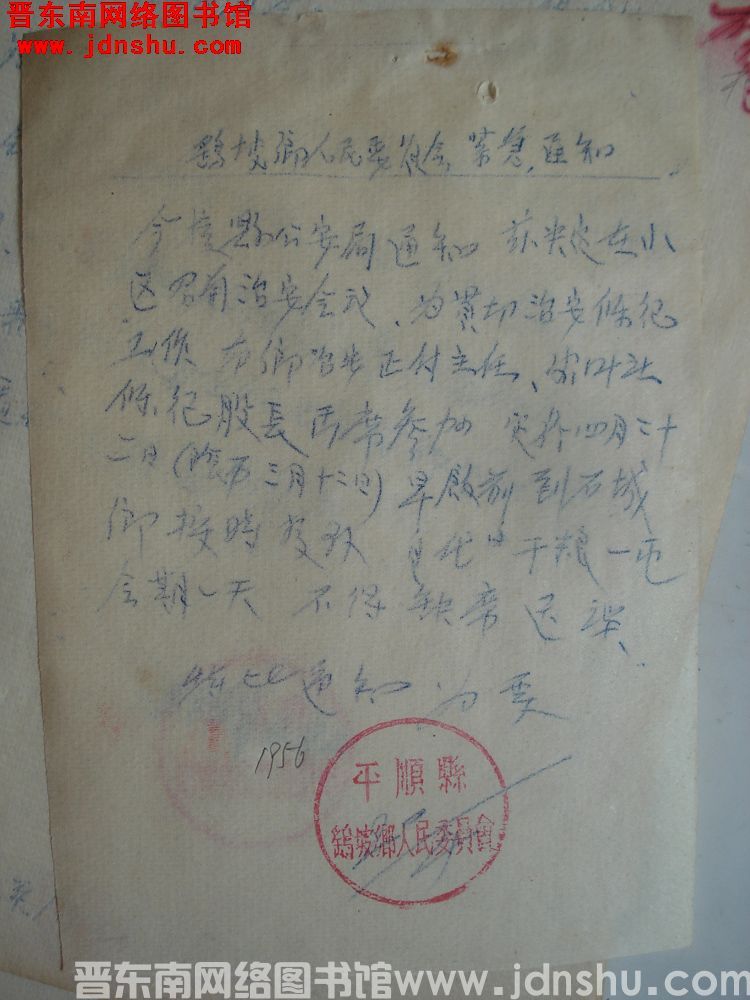 晋东南网络图书馆
www.jdnshu.com
鹞坡鄉人民委员会 紧急 通知
今接县公安局通知 兹决定在小
区召开治安会议、为贯切治安保纪
工作 方鄉治安正付主任、
保纪股長 出席参加 定于四月二十
二日(陰历三月十二日)早飯前到石城
鄉 按時 干粮一
会期一天 不得缺席 迟误、
特此通知 为要
1956
平順縣
鹞坡鄉人民委員會
晋东南网络图书馆www.jdnshu.com